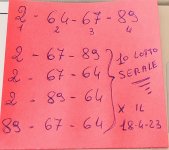 2 - 64 - 67 - 89
1 2 3 4
2 - 67 - 89
2 - 67 - 64
2 - 89 - 64
89 - 67 - 64
10 LOTTO
SERALE
X IL
18-4-23